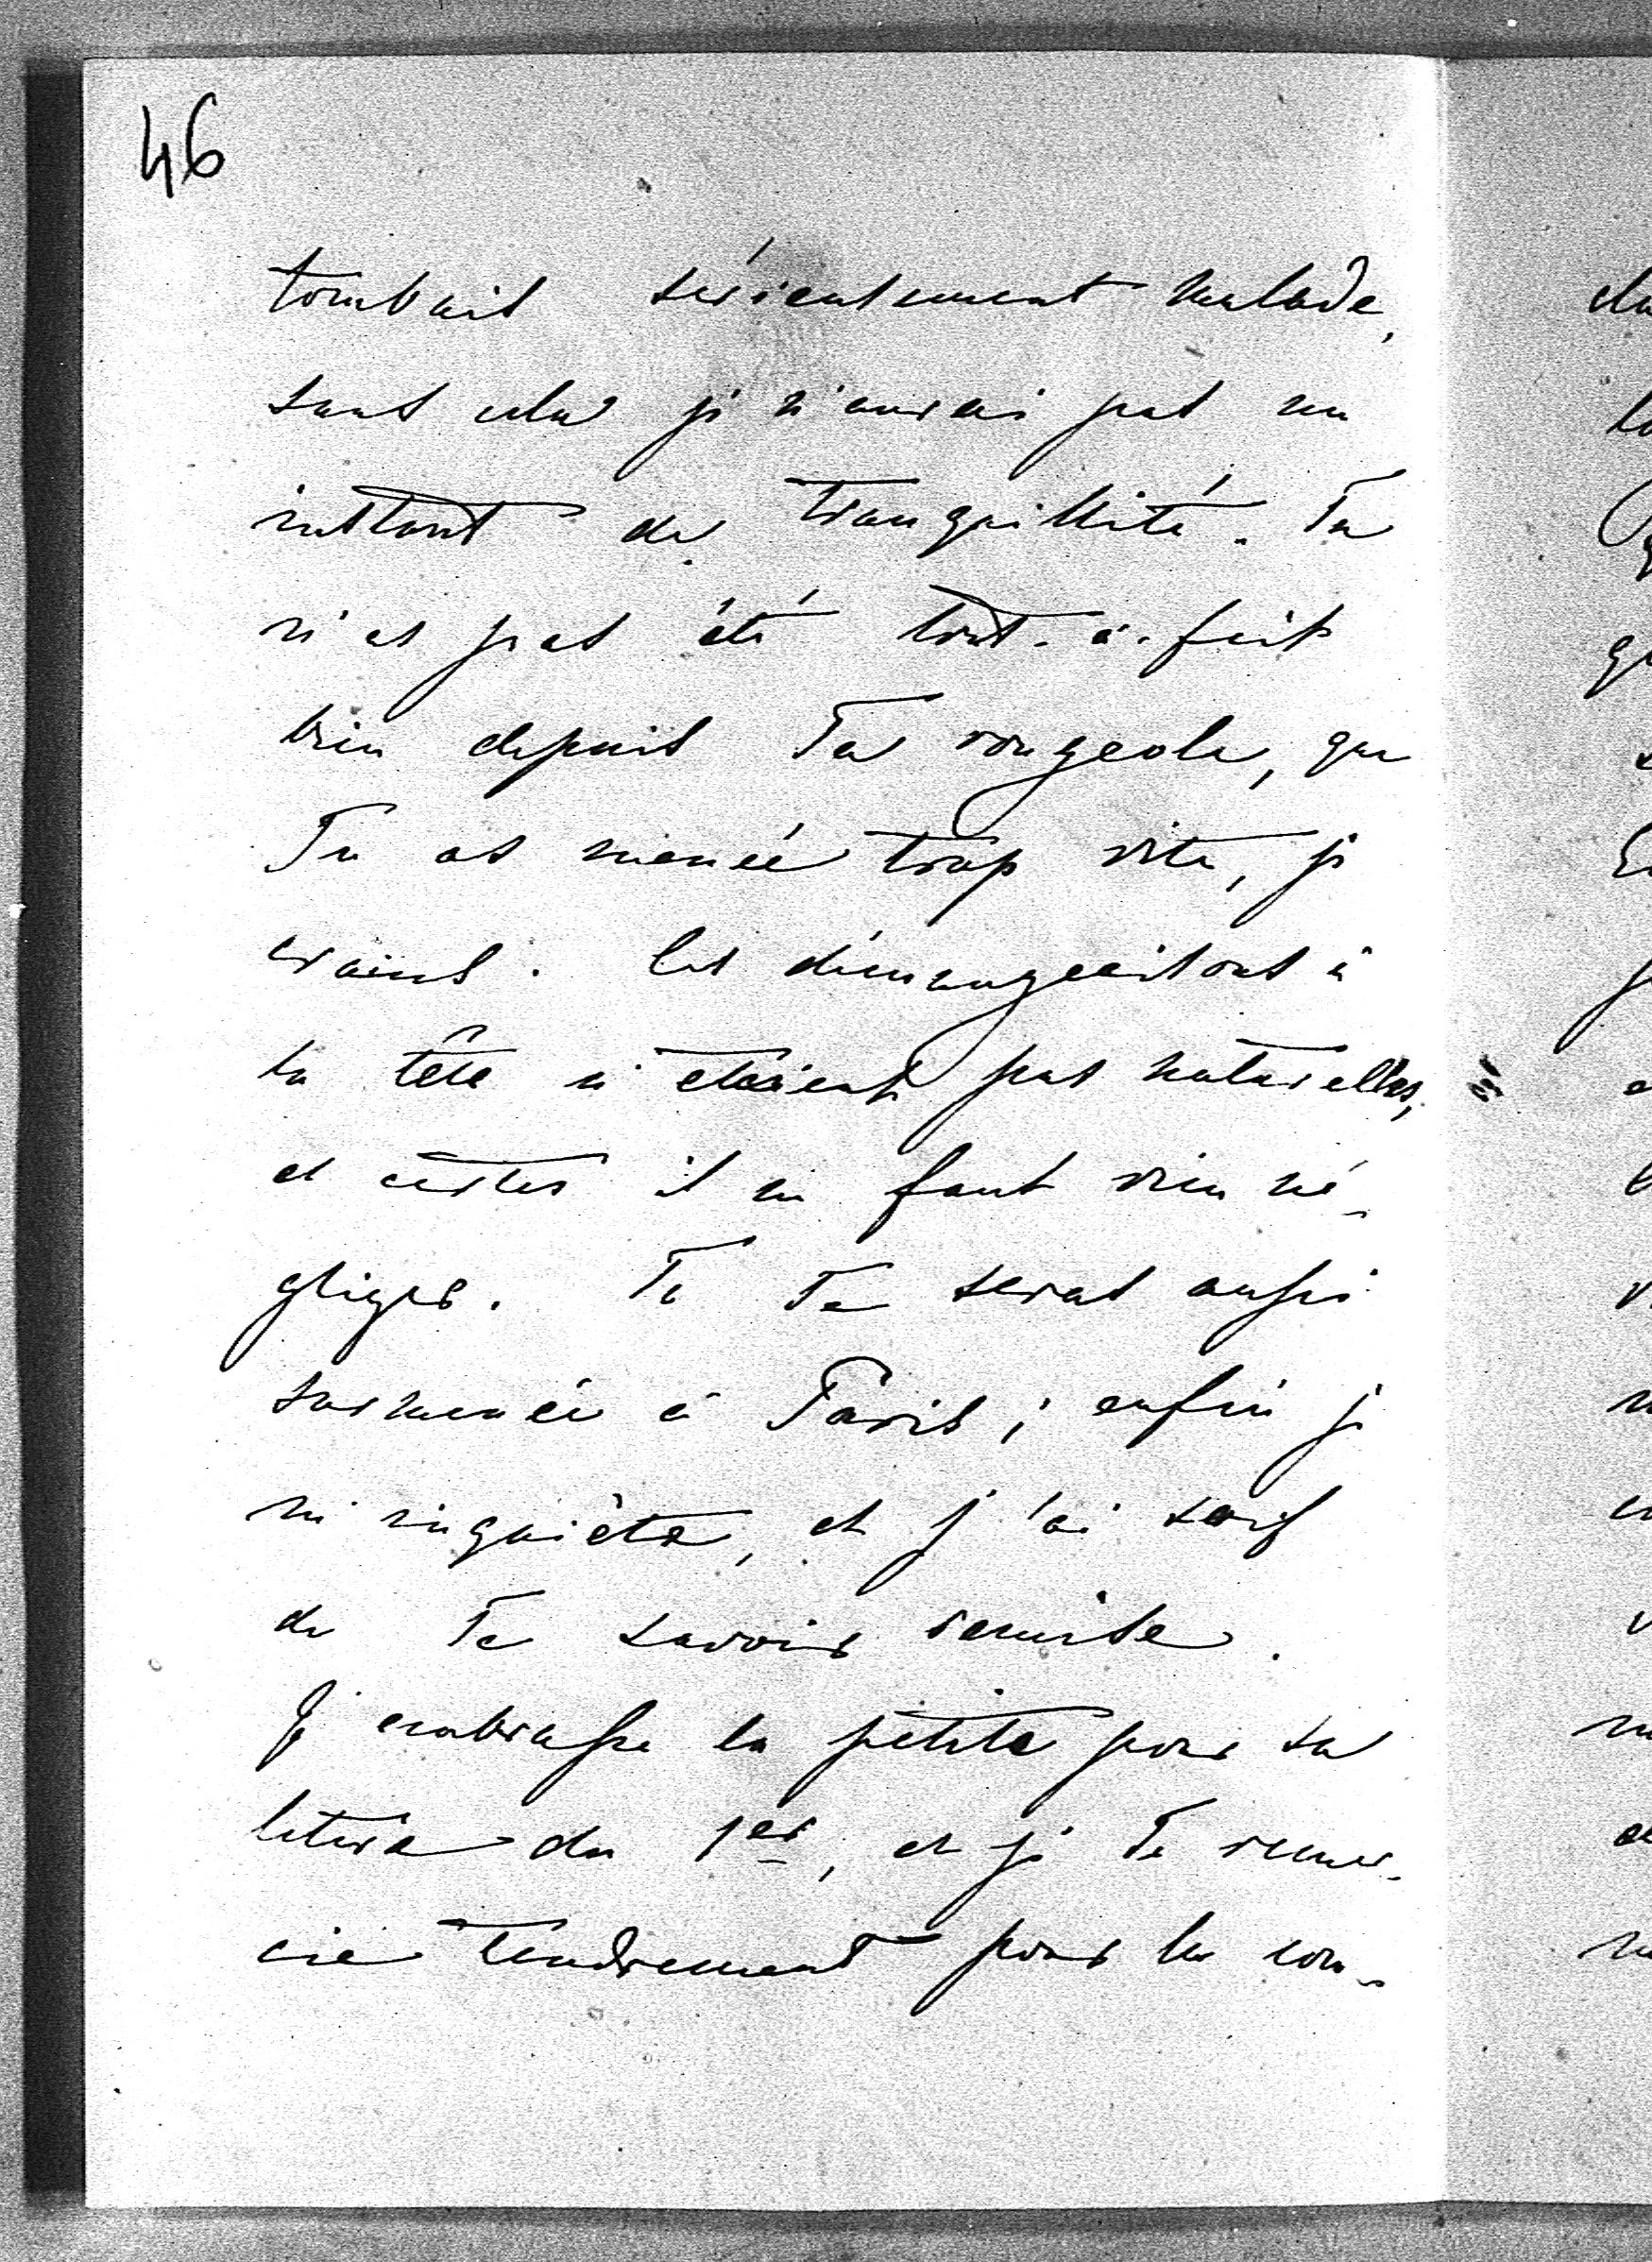 46
tombais sérieusement malade,
sans cela je n'aurai pas un
instant de tranquillité. Tu
n'as pas été tout-à-fait
bien depuis Ta rougeole, que
Tu as menée trop vite, je
crains. les démangeaisons à
la tête n'étaient pas naturelles,
et certes il ne faut rien né-
gliger. Tu Te seras aussi
surmenée à Paris; enfin je
m'inquiète, et j'ai soif
de Te savoir remise.
J'embrasse la petite pour sa
lettre du 1er, et je Te remer-
cie tendrement pour les con-